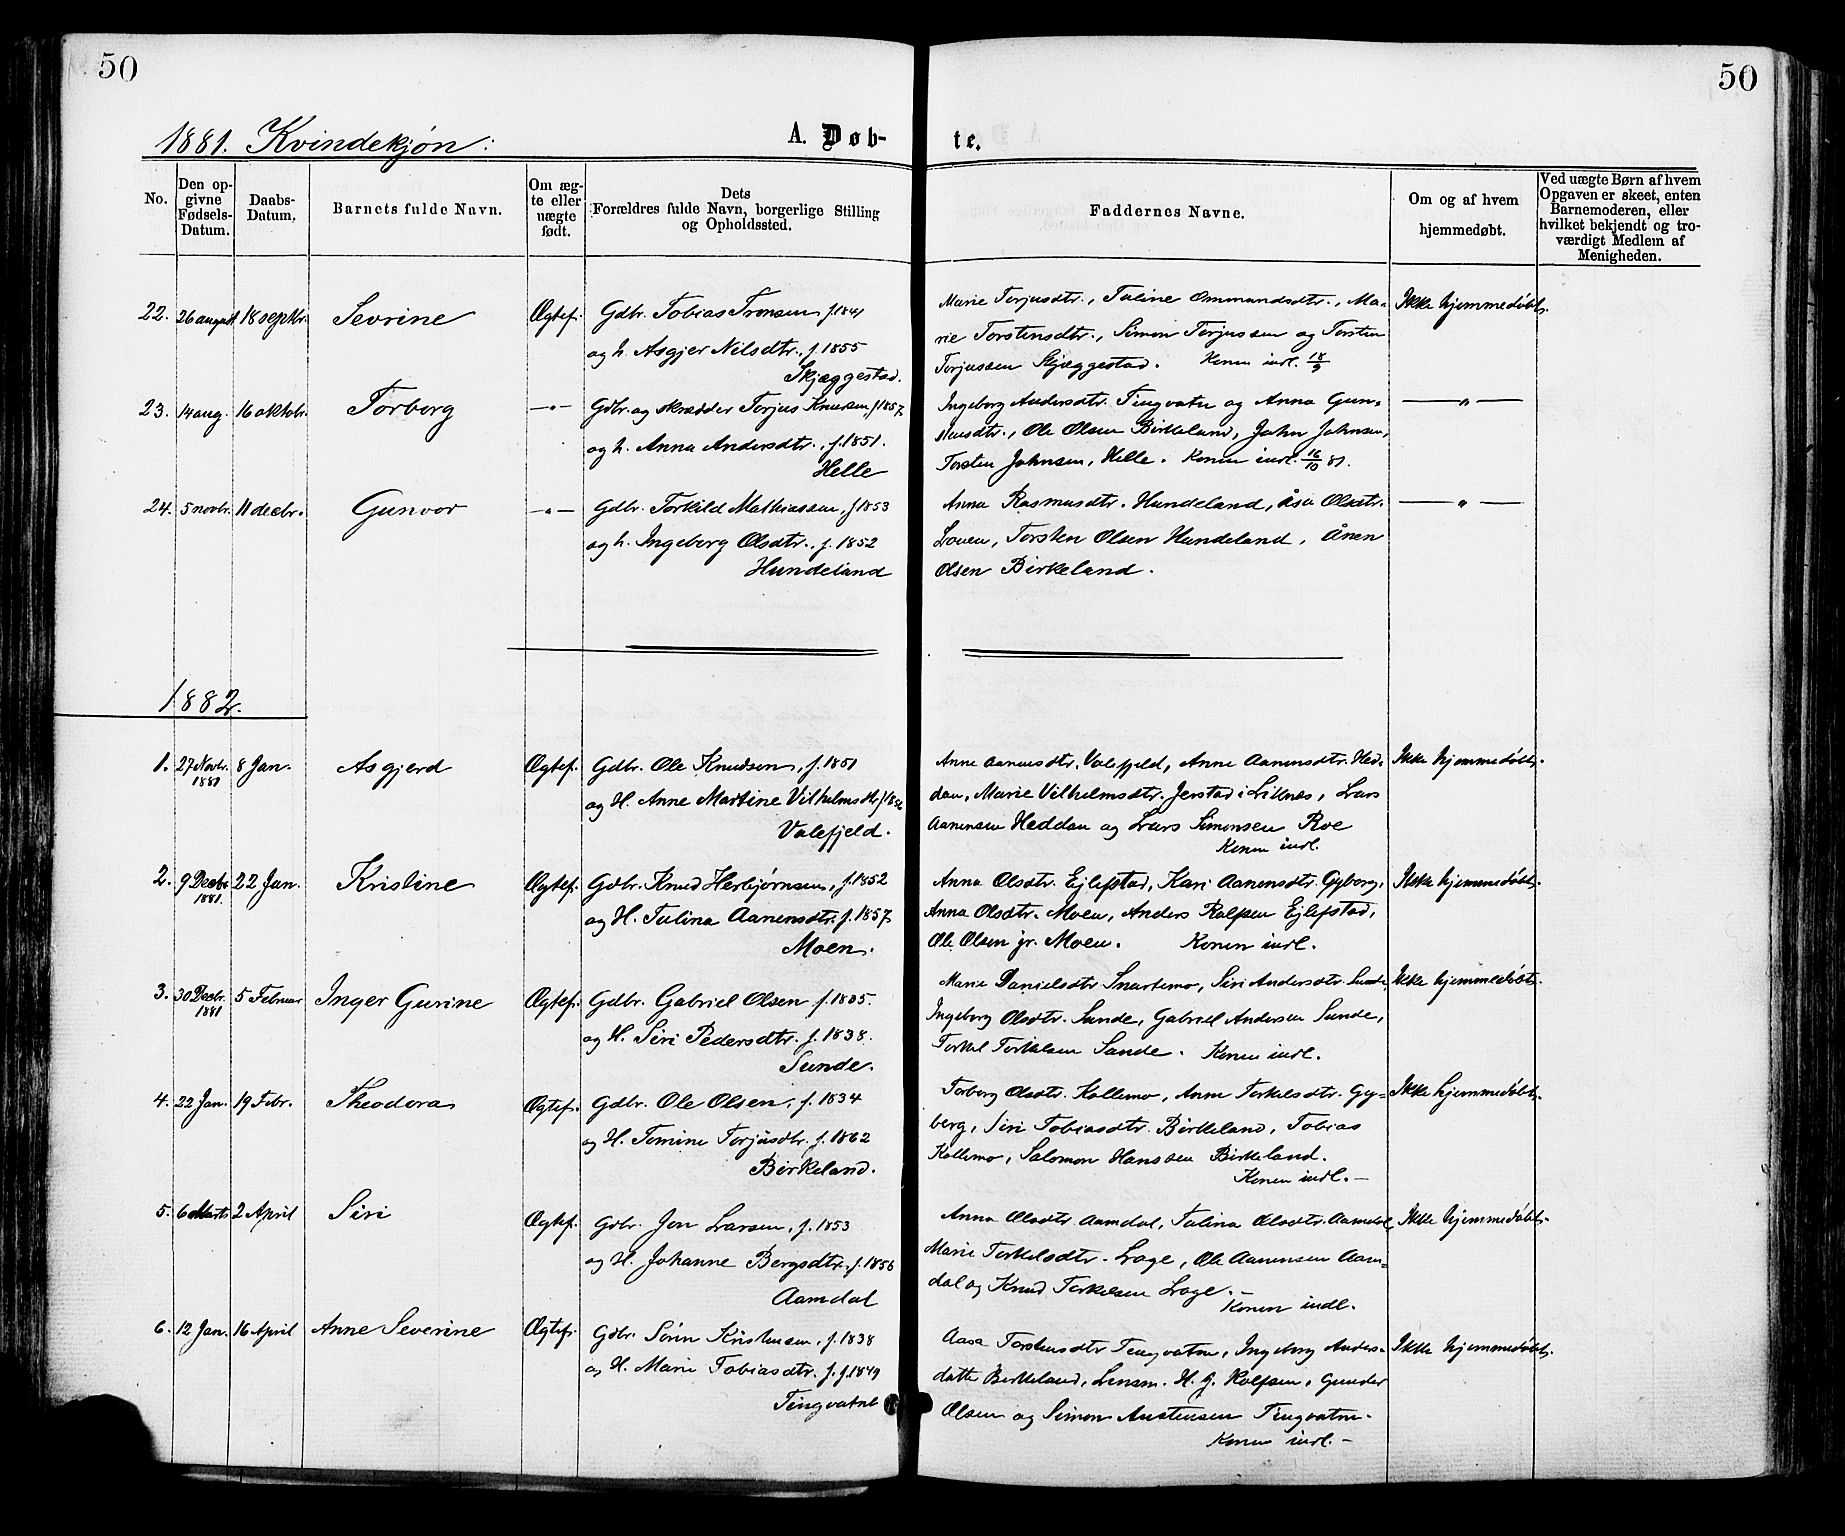 50
50
1881. Kvindekjøn:
A. Døb-
te.
No.
Den op-
givne
Fødsels-
Datum.
Daabs-
Datum.
Barnets fulde Navn.
Om æg-
te eller
uægte
født.
Dets
Forældres fulde Navn, borgerlige Stilling
og Opholdssted.
Faddernes Navne.
Om og af hvem
hjemmedøbt.
Ved uægte Børn af hvem
Opgaven er skeet, enten
Barnemoderen, eller
hvilket bekjendt og tro-
værdigt Medlem af
Menigheden.
22. 26 august 18 septbr. Sevrine Ægtef. Gdbr. Tobias Tronsen f. 1841
og h. Asgjer Nilsdtr. f. 1855
Skjæggestad.
Marie Torjusdtr., Taline Ommundsdtr., Ma-
rie Torstensdtr., Simon Torjussen og Torsten
Torjussen Skjæggestad. Konen indl. 18/9
Ikke hjemmedøbt.
23. 14 aug. 16 oktobr. Torborg —"— Gdbr. og skrædder Torjus Knudsen, f. 1857
og h. Anna Andersdtr., f. 1851.
Helle
Ingeborg Andersdtr. Tingvatn og Anna Gun-
stensdtr., Ole Olsen Birkeland, John Johnsen,
Torsten Johnsen, Helle. Konen indl. 16/10 81.
—"—
24. 5 novbr. 11 decbr. Gunvor —"— Gdbr. Torkild Mathiassen, f. 1853
og h. Ingeborg Olsdtr., f. 1852
Hundeland
Anna Rasmusdtr. Hundeland, Åsa Olsdtr.
Louen, Torsten Olsen Hundeland, Ånen
Olsen Birkeland.
—"—
1882.
1. 27 Novbr. 1881 8 Jan. Asgjerd Ægtef. Gdbr. Ole Knudsen, f. 1851
og H. Anne Martine Vilhelmsdtr. f. 1856
Valefjeld.
Anne Aanensdtr. Valefjeld, Anne Aanensdtr. Hed-
dan, Marie Vilhelmsdtr. Jerstad i Liknes, Lars
Aanensen Heddan og Lars Simonsen Roe
Konen indl.
Ikke hjemmedøbt.
2. 9 Decbr. 1881. 22 Jan. Kristine Ægtef. Gdbr. Knud Herbjørnsen, f. 1852
og H. Talina Aanensdtr. f. 1857
Moen.
Anna Olsdtr. Ejlefstad, Kari Aanensdtr. Gyberg,
Anna Olsdtr. Moen, Anders Rolfsen Ejlefstad,
Ole Olsen jr. Moen. Konen indl.
Ikke hjemmedøbt.
3. 30 Decbr. 1881 5 Februar Inger Gurine Ægtef. Gdbr. Gabriel Olsen f. 1835.
og H. Siri Pedersdtr. f. 1838.
Sunde.
Marie Danielsdtr Snartemo, Siri Andersdtr. Sunde,
Ingeborg Olsdtr. Sunde, Gabriel Andersen Sunde,
Torkel Torkelsen Sande. Konen indl.
Ikke hjemmedøbt.
4. 22 Jan. 19 Febr. Theodora Ægtef. Gdbr. Ole Olsen, f. 1834
og H. Tomine Torjusdtr. f. 1862
Birkeland.
Torborg Olsdtr. Kollemo, Anne Torkelsdtr. Gy-
berg, Siri Tobiasdtr. Birkeland, Tobias
Kollemo, Salomon Hanssen Birkeland.
Konen indl.—
Ikke hjemmedøbt.
5. 6 Marts 2 April Siri Ægtef. Gdbr. Jon Larsen, f. 1853
og H. Johanne Bergsdtr. f. 1856
Aamdal
Anna Olsdtr. Aamdal, Talina Olsdtr. Aamdal,
Marie Torkelsdtr. Lage, Ole Aanensen Aam-
dal og Knud Torkelsen Lage.—
Konen indl.
Ikke hjemmedøbt.
6. 12 Jan. 16 April Anne Severine Ægtef. Gdbr. Sørin Kristensen, f. 1838
og H. Marie Tobiasdtr. f. f. 1849
Tingvatn
Aasa Torstensdtr Tingvatn, Ingeborg Anders-
datter Birkeland, Lensm. H. G. Rolfsen, Gunder
Olsen og Simon Austensen Tingvatn.
Konen indl.—
Ikke hjemmedøbt.